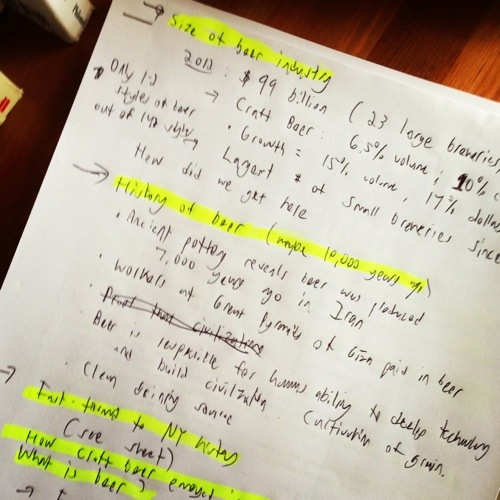 → Size of beer industry
2012 : $99 billion (23 large breweries,
→ Craft Beer : 6.5% volume ; 10%
• Only 1-2 styles of beer out of 140 styles
• Growth = 15% volume, 17% dollars
Largest # of small breweries since
How did we get here
→ History of beer (maybe 10,000 years ago)
• Ancient pottery reveals beer was produced
7,000 years ago in Iran
• Workers at Great Pyramids of Giza paid in beer
• Proof that civilization
Beer is responsible for humans ability to develop technology
and build civilization. Cultivation of grain.
• Clean drinking source
→ Fast forward to NY history
(see sheet)
How craft beer emerged
What is beer?